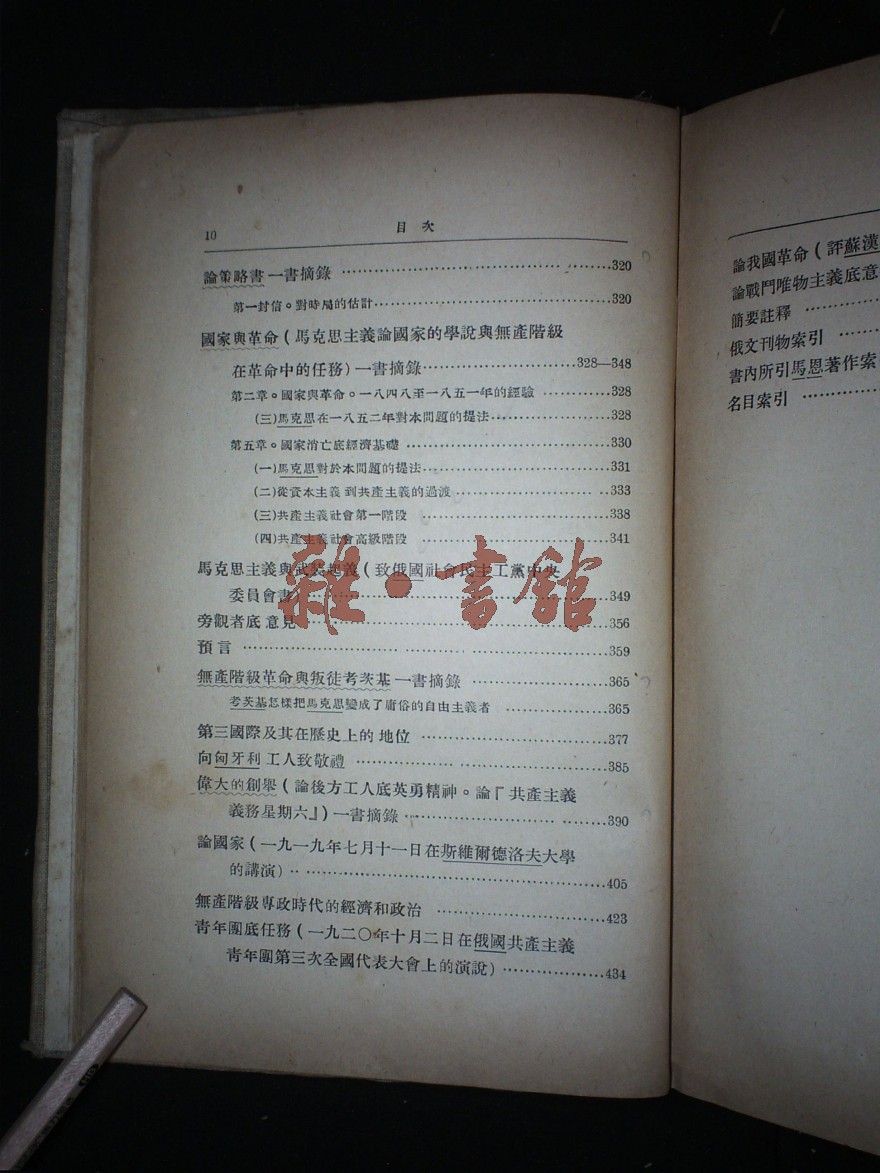 10 目次
論策略書一書摘錄 ……320
第一封信。對時局的估計……320
國家與革命(馬克思主義論國家的學說與無產階級
在革命中的任務)一書摘錄……328—348
第二章。國家與革命。一八四八至一八五一年的經驗 ……328
(三)馬克思在一八五二年對本問題的提法……328
第五章。國家消亡底經濟基礎 ……330
(一)馬克思對於本問題的提法……331
(二)從資本主義到共產主義的過渡……333
(三)共產主義社會第一階段 ……338
(四)共產主義社會高級階段 ……341
馬克思主義與武裝起義(致俄國社會民主工黨中央
委員會書)……349
旁觀者底意見……356
預言……359
無產階級革命與叛徒考茨基一書摘錄 ……365
考茨基怎樣把馬克思變成了庸俗的自由主義者 ……365
第三國際及其在歷史上的地位 ……377
向匈牙利工人致敬禮 ……385
偉大的創舉(論後方工人底英勇精神。論『共產主義
義務星期六』)一書摘錄……390
論國家(一九一九年七月十一日在斯維爾德洛夫大學
的講演)……405
無產階級專政時代的經濟和政治 ……423
青年團底任務(一九二〇年十月二日在俄國共產主義
青年團第三次全國代表大會上的演說)……434
雜·書館
論我國革命(評蘇漢
論戰鬥唯物主義底意
簡要註釋 ……
俄文刊物索引 ……
書內所引馬恩著作索
名目索引 ……